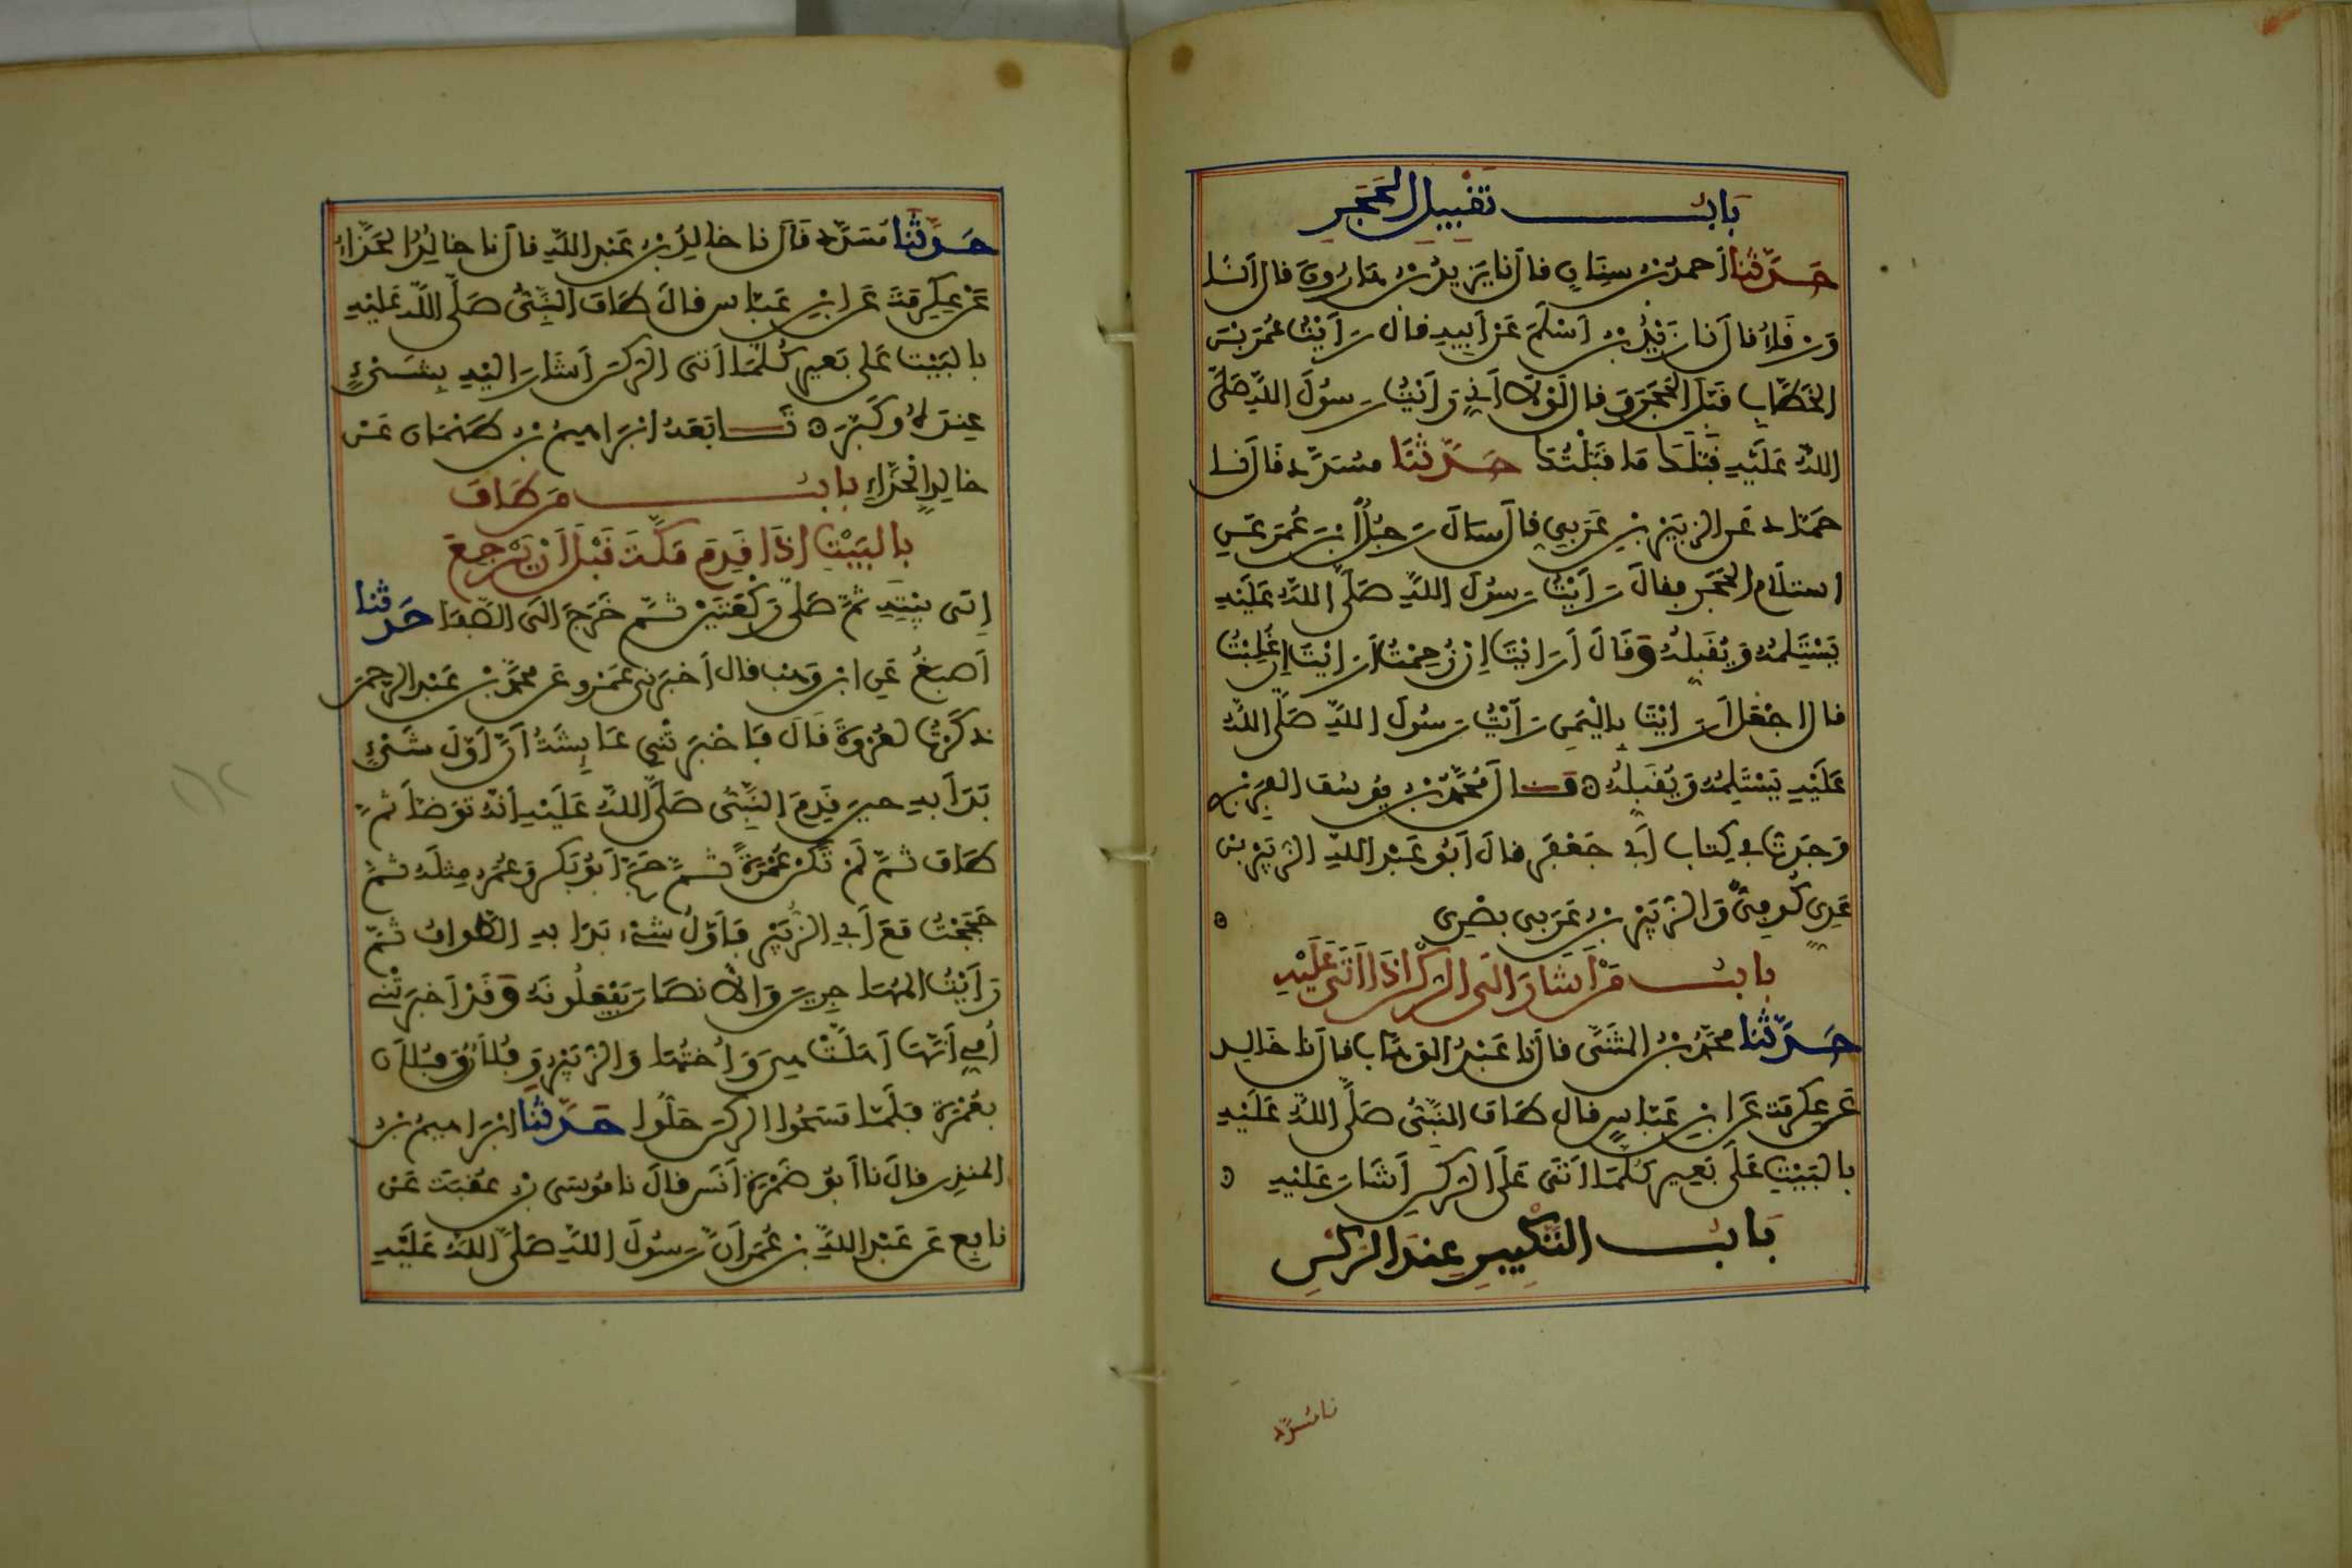 بَابُ تَقْبِيلِ الْحَجَرِ
حَدَّثَنَا أَحمدُ بْنُ سِنَانٍ قال نا يَزِيدُ بْنُ هَارُونَ قال أنَا
وَرْقَاءُ قال أنا زَيْدُ بْنُ أَسْلَمَ عَنْ أَبِيهِ قال رَأَيْتُ عُمَرَ بْنَ
الْخَطَّابِ قَبَّلَ الْحَجَرَ وَ قال لَوْلَا أَنِّي رَأَيْتُ رَسُولَ اللَّهِ صَلَّى
اللَّهُ عَلَيْهِ قَبَّلَكَ مَا قَبَّلْتُكَ حَدَّثَنَا مُسَدَّد قَالَ نا
حَمَّاد عَنِ الزُّبَيْرِ بْنِ عَرَبِيٍ قال سَأَلَ رَجُلٌ ابْنَ عُمَرَ عَنِ
اسْتِلَامِ الْحَجَرِ فقالَ رَأَيْتُ رَسُولَ اللَّهِ صَلَّى اللَّهُ عَلَيْهِ
يَسْتَلِمُهُ وَيُقَبِّلُهُ وَقَالَ أَرَأَيْتَ إِنْ زُحِمْتُ أَرَأَيْتَ إِنْ غُلِبْتُ
قال اجْعَلْ أَرَأَيْتَ بِالْيَمَنِ رَأَيْتُ رَسُولَ اللَّهِ صَلَّى اللَّهُ
عَلَيْهِ يَسْتَلِمُهُ وَيُقَبِّلُهُ ه قَالَ مُحَمَّدُ بْنُ يُوسُفَ الْفِرَبْرِي
وَجَدْتُ فِي كِتَابِ أَبِي جَعْفَرٍ قالَ أَبُو عَبْدِ اللَّهِ الزُّبَيْرُ بْنُ
عَدِيٍ كُوفِيٌّ وَالزُّبَيْرُ بْنُ عَرَبِي بَصْرِي ه
بابُ مَنْ أَشَارَ إِلَى الرُّكْنِ إِذَا أَتَى عَلَيْهِ
حَدَّثَنَا مُحَمَّدُ بْنُ الْمُثَنَّى قال نا عَبْدُ الْوَهَّابِ قال نا خَالِد
عَنْ عِكْرِمَةَ عَنِ ابْنِ عَبَّاسٍ قال طَافَ النَّبِيُّ صَلَّى اللَّهُ عَلَيْهِ
بِالْبَيْتِ عَلَى بَعِيرٍ كُلَّمَا أَتَى عَلَى الرُّكْنِ أَشَارَ عَلَيْهِ ه
بَابُ التَّكْبِيرِ عِنْدَ الرُّكْنِ
نا مُسَدَّد
حَدَّثَنَا مُسَدَّد قَالَ نا خالِدُ بْنُ عَبْدِ اللَّهِ قال نا خالِدٌ الْحَذَّاءُ
عَنْ عِكْرِمَةَ عَنِ ابْنِ عَبَّاسٍ قالَ طَافَ النَّبِيُّ صَلَّى اللَّهُ عَلَيْهِ
بالبَيْتِ عَلَى بَعِيرٍ كُلَّمَا أَتَى الرُّكْنَ أَشَارَ إِلَيْهِ بِشَيْءٍ
عِنْدَهُ وَكَبَّرَ ه تَابَعَهُ إبْرَاهِيمُ بْنُ طَهْمَانَ عَنْ
خالِدٍ الْحَذَّاءِ بابُ مَنْ طَافَ
بِالْبَيْتِ إِذَا قَدِمَ مَكَّةَ قَبْلَ أَنْ يَرْجِعَ
إِلَى بَيْتِهِ ثُمَّ صَلَّى رَكْعَتَيْنِ ثُمَّ خَرَجَ إِلَى الصَّفَا حَدثنا
أَصْبَغُ عَنِ ابْنِ وَهْبٍ قال أَخْبَرَنِي عَمْرٌو عَنْ مُحَمَّدِ بْنِ عَبْدِ الرَّحمن
ذَكَرْتُ لِعُرْوَةَ قَالَ فَأَخْبَرَتْنِي عَائِشَةُ أَنَّ أَوَّلَ شَيْءٍ
بَدَأَ بِهِ حِينَ قَدِمَ النَّبِيُّ صَلَّى اللَّهُ عَلَيْهِ أَنَّهُ تَوَضَّأَ ثُمَّ
طَافَ ثُمَّ لَمْ تَكُنْ عُمْرَةً ثُمَّ حَجَّ أَبُو بَكْرٍ وَعُمَرُ مِثْلَهُ ثُمَّ
حَجَجْتُ مَعَ أَبِي الزُّبَيْرِ فَأَوَّلُ شَيْءٍ بَدَأَ بِهِ الطَّوَافُ ثُمَّ
رَأَيْتُ الْمُهَاجِرِينَ وَالأَنصَارَ يَفْعَلُونَهُ وَقَدْ أَخْبَرَتْنِي
أُمِّي أَنَّهَا أَهَلَّتْ هِيَ وَأُخْتُهَا وَالزُّبَيْرُ وَفُلَانٌ وَفُلَانٌ
بِعُمْرَةٍ فَلَمَّا مَسَحُوا الرُّكْنَ حَلُّوا حَدَّثَنَا إبْرَاهِيمُ بْنُ
الْمُنْذِرِ قالَ نا أَبُو ضَمْرَةَ أَنَسٌ قالَ نا مُوسَى بْنُ عُقْبَةَ عَنْ
نافِعٍ عَنْ عَبْدِ اللَّهِ بْنِ عُمَرَ أَنَّ رَسُولَ اللَّهِ صَلَّى اللَّهُ عَلَيْهِ